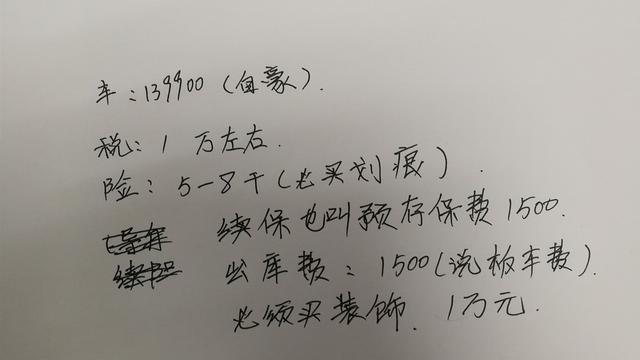 车：139900（自豪）.
税：1万左右.
险：5-8千（必买划痕）.
续保也叫预存保费1500.
出库费：1500（说板车费）.
必须买装饰. 1万元.